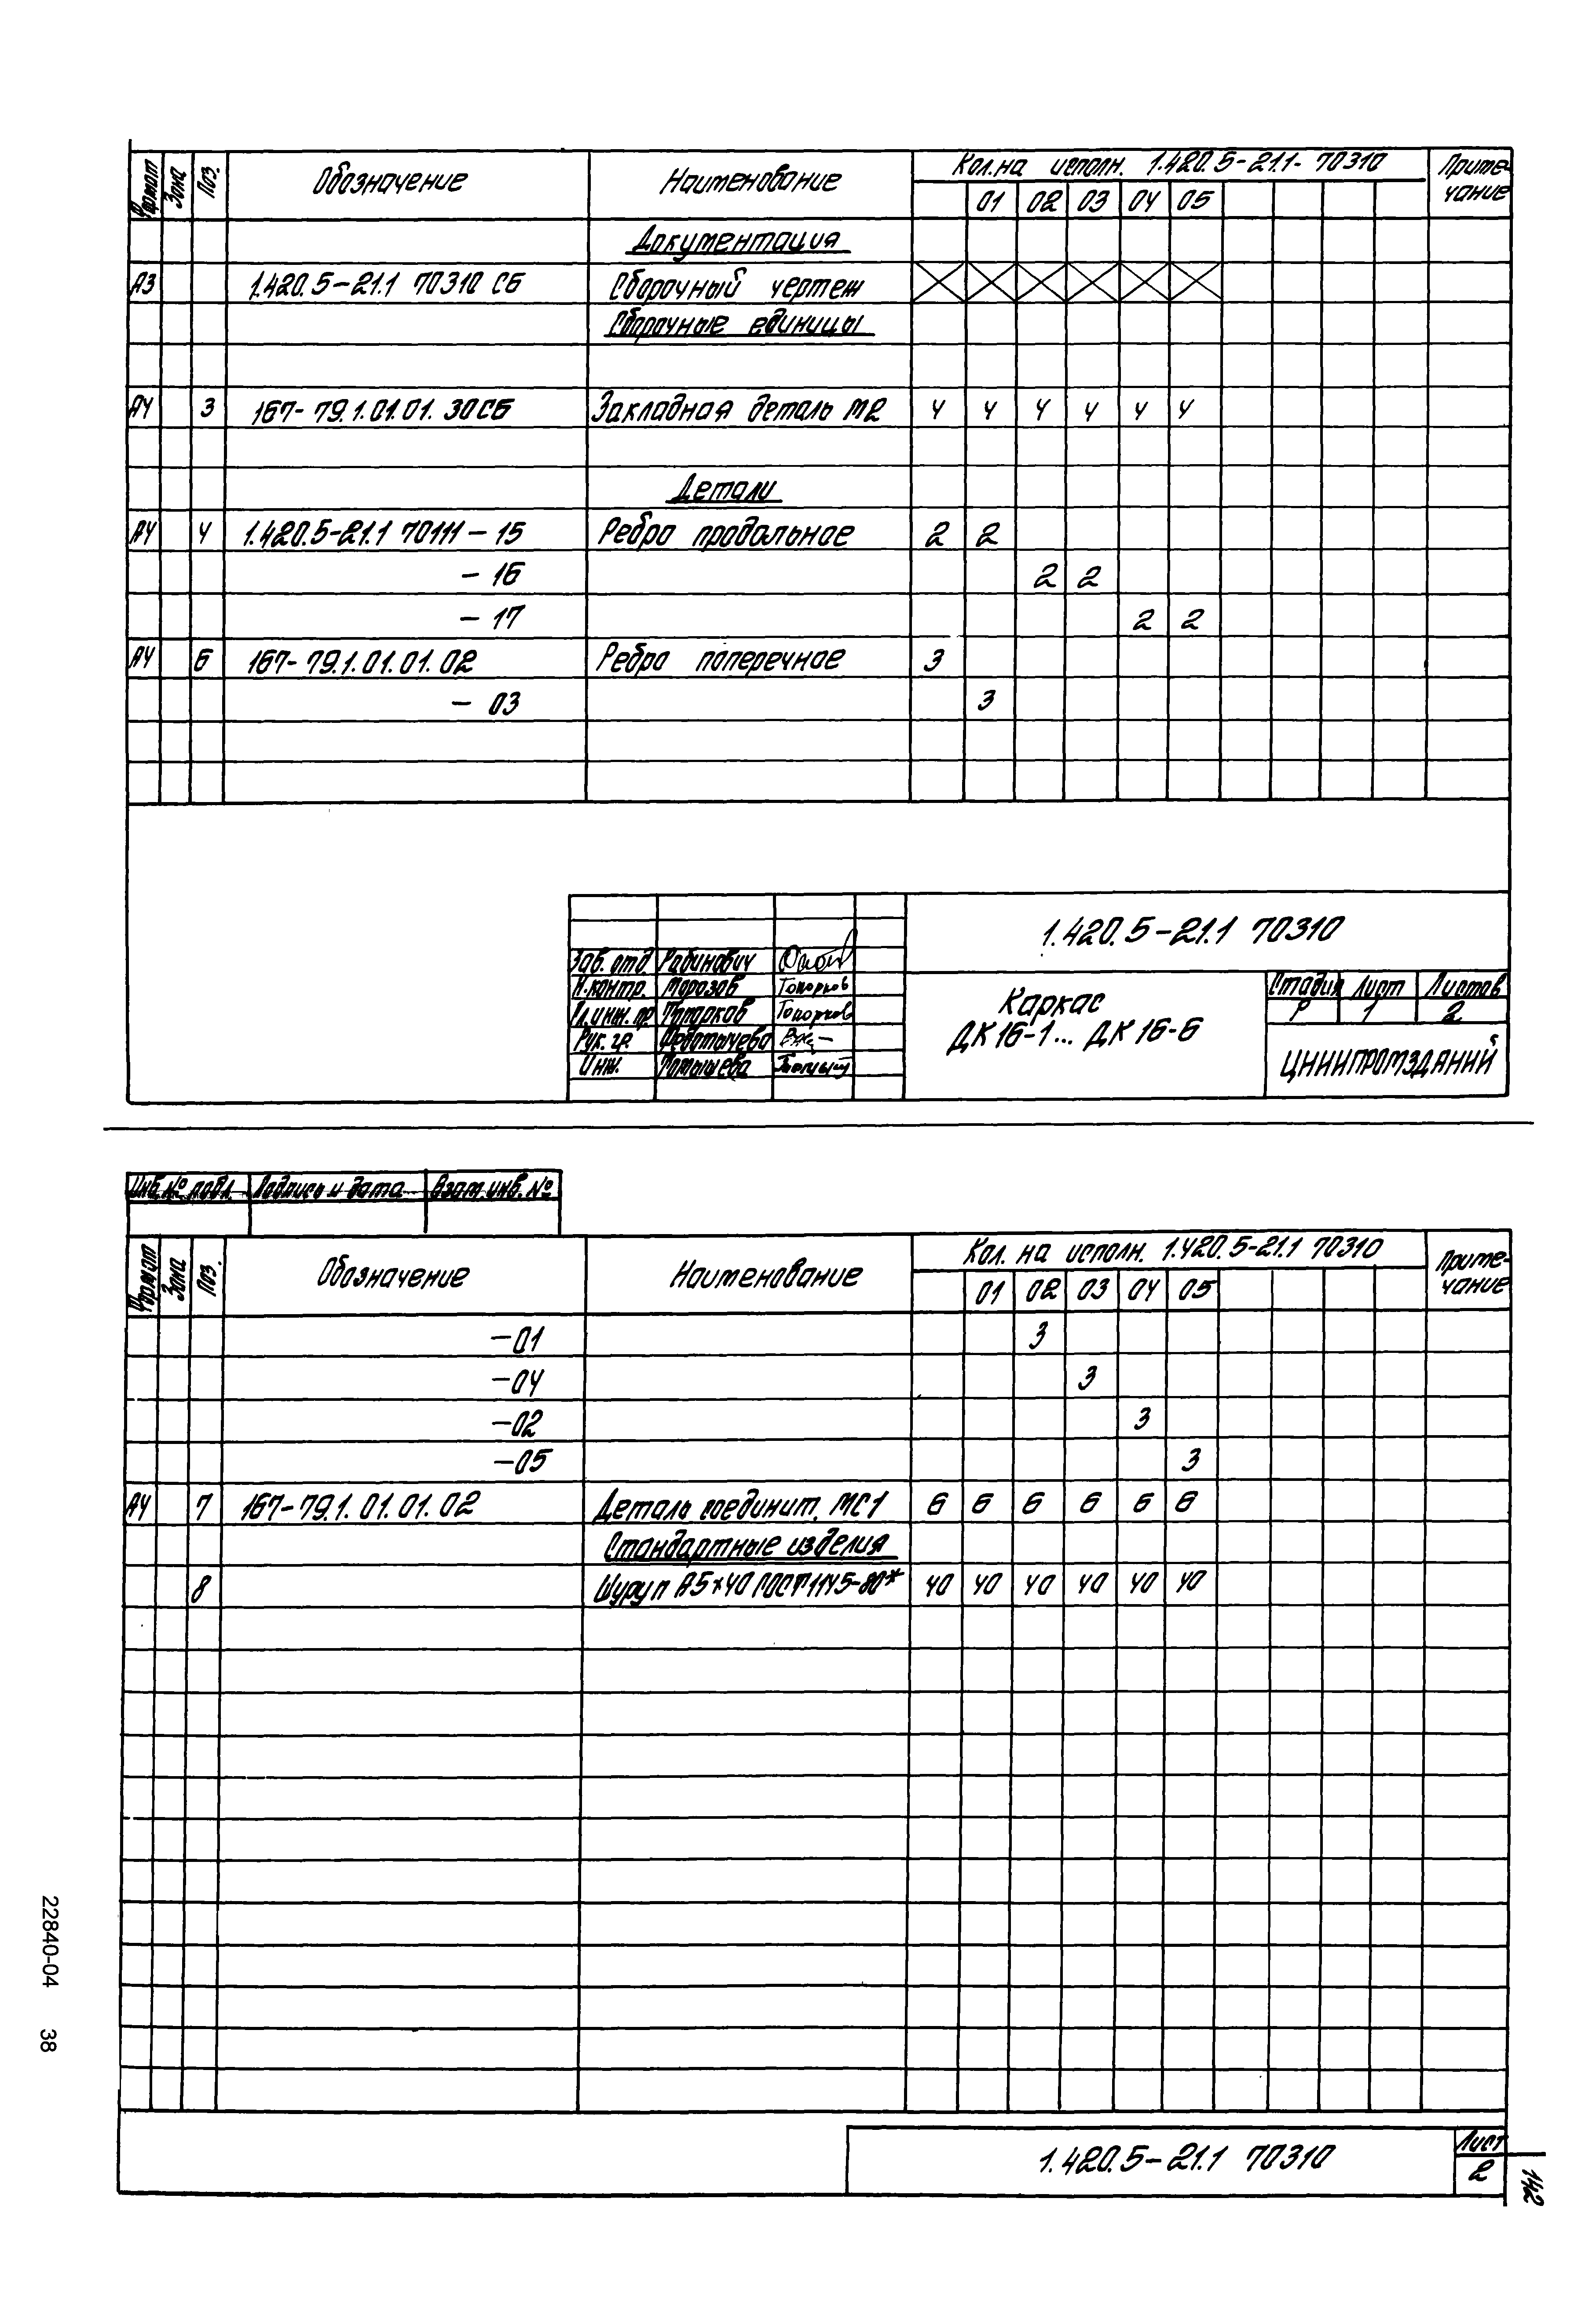 Формат Зона Поз. Обозначение Наименование Кол. на исполн. 1.420.5-21.1- 70310 Приме-
чание
01 02 03 04 05
Документация
А3 1.420.5-21.1 70310 СБ Сборочный чертеж
Сборочные единицы
А4 3 167-79.1.01.01.30СБ Закладная деталь М2 4 4 4 4 4 4
Детали
А4 4 1.420.5-21.1 70111-15 Ребро продольное 2 2
-16 2 2
-17 2 2
А4 6 167-79.1.01.01.02 Ребро поперечное 3
-03 3
1.420.5-21.1 70310
Зав. отд Рабинович
Н.контр. Морозов Топорков
Гл.инж. пр Топорков Топорков
Рук. гр.
Инж.
Каркас
ДК16-1... ДК16-6
Стадия Лист Листов
Р 1 2
ЦНИИПРОМЗДАНИЙ
Инв.№ подл. Подпись и дата Взам.инв.№
Формат Зона Поз. Обозначение Наименование Кол. на исполн. 1.420.5-21.1 70310 Приме-
чание
01 02 03 04 05
-01 3
-04 3
-02 3
-05 3
А4 7 167-79.1.01.01.02 Деталь соединит. МС1 6 6 6 6 6 6
Стандартные изделия
8 Шуруп А5×40 ГОСТ 1145-80* 40 40 40 40 40 40
1.420.5-21.1 70310
Лист
2
142
22840-04 38